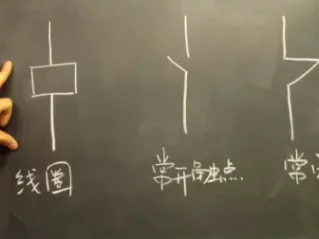 线圈
常开触点
常